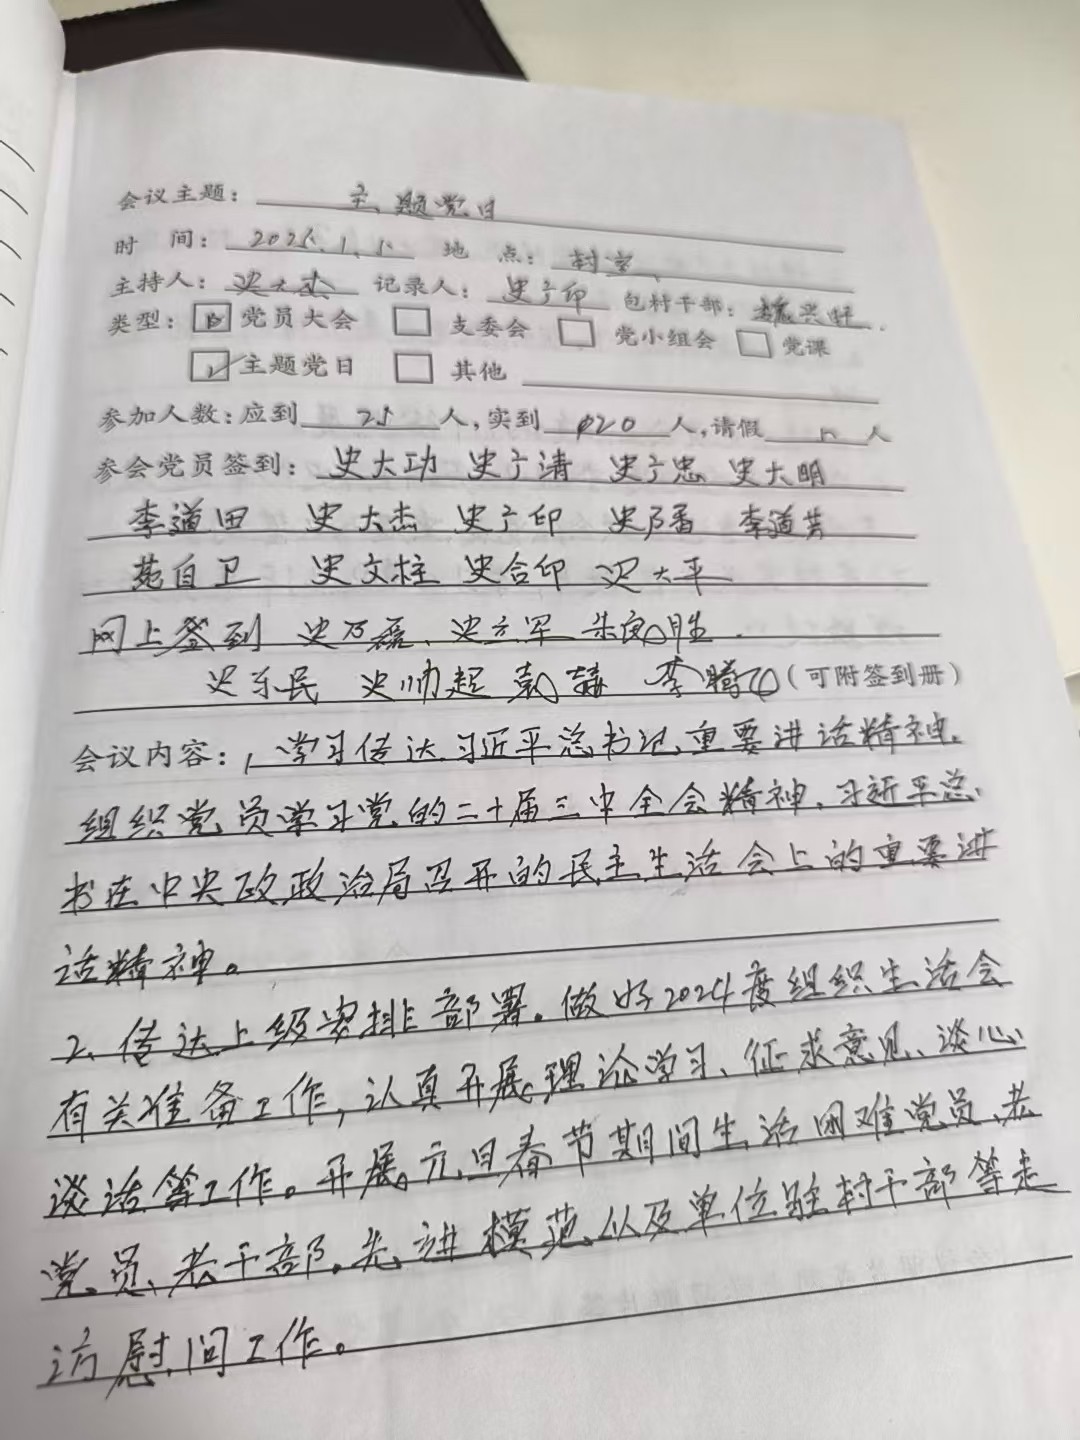 会议主题：主题党日
时 间：2025.1.5 地 点：村室
主持人：史大杰 记录人：史广印 包村干部：兴旺
类型：☑党员大会 □支委会 □党小组会 □党课
☑主题党日 □其他
参加人数：应到25人，实到20人，请假 人
参会党员签到：史大功 史广清 史广忠 史大明
李道田 史大杰 史广印 史乃香 李道芳
苑自卫 史文柱 史合印 史大平
网上签到 史乃磊、史方军 朱良胜
史乐民 史帅起 李腾飞（可附签到册）
会议内容：1、学习传达习近平总书记重要讲话精神.
组织党员学习党的二十届三中全会精神、习近平总
书在中央政政治局召开的民主生活会上的重要讲
话精神。
2、传达上级安排部署。做好2024度组织生活会
有关准备工作，认真开展理论学习、征求意见、谈心
谈话等工作。开展元旦春节期间生活困难党员、老
党员、老干部、先进模范、以及单位驻村干部等走
访慰问工作。